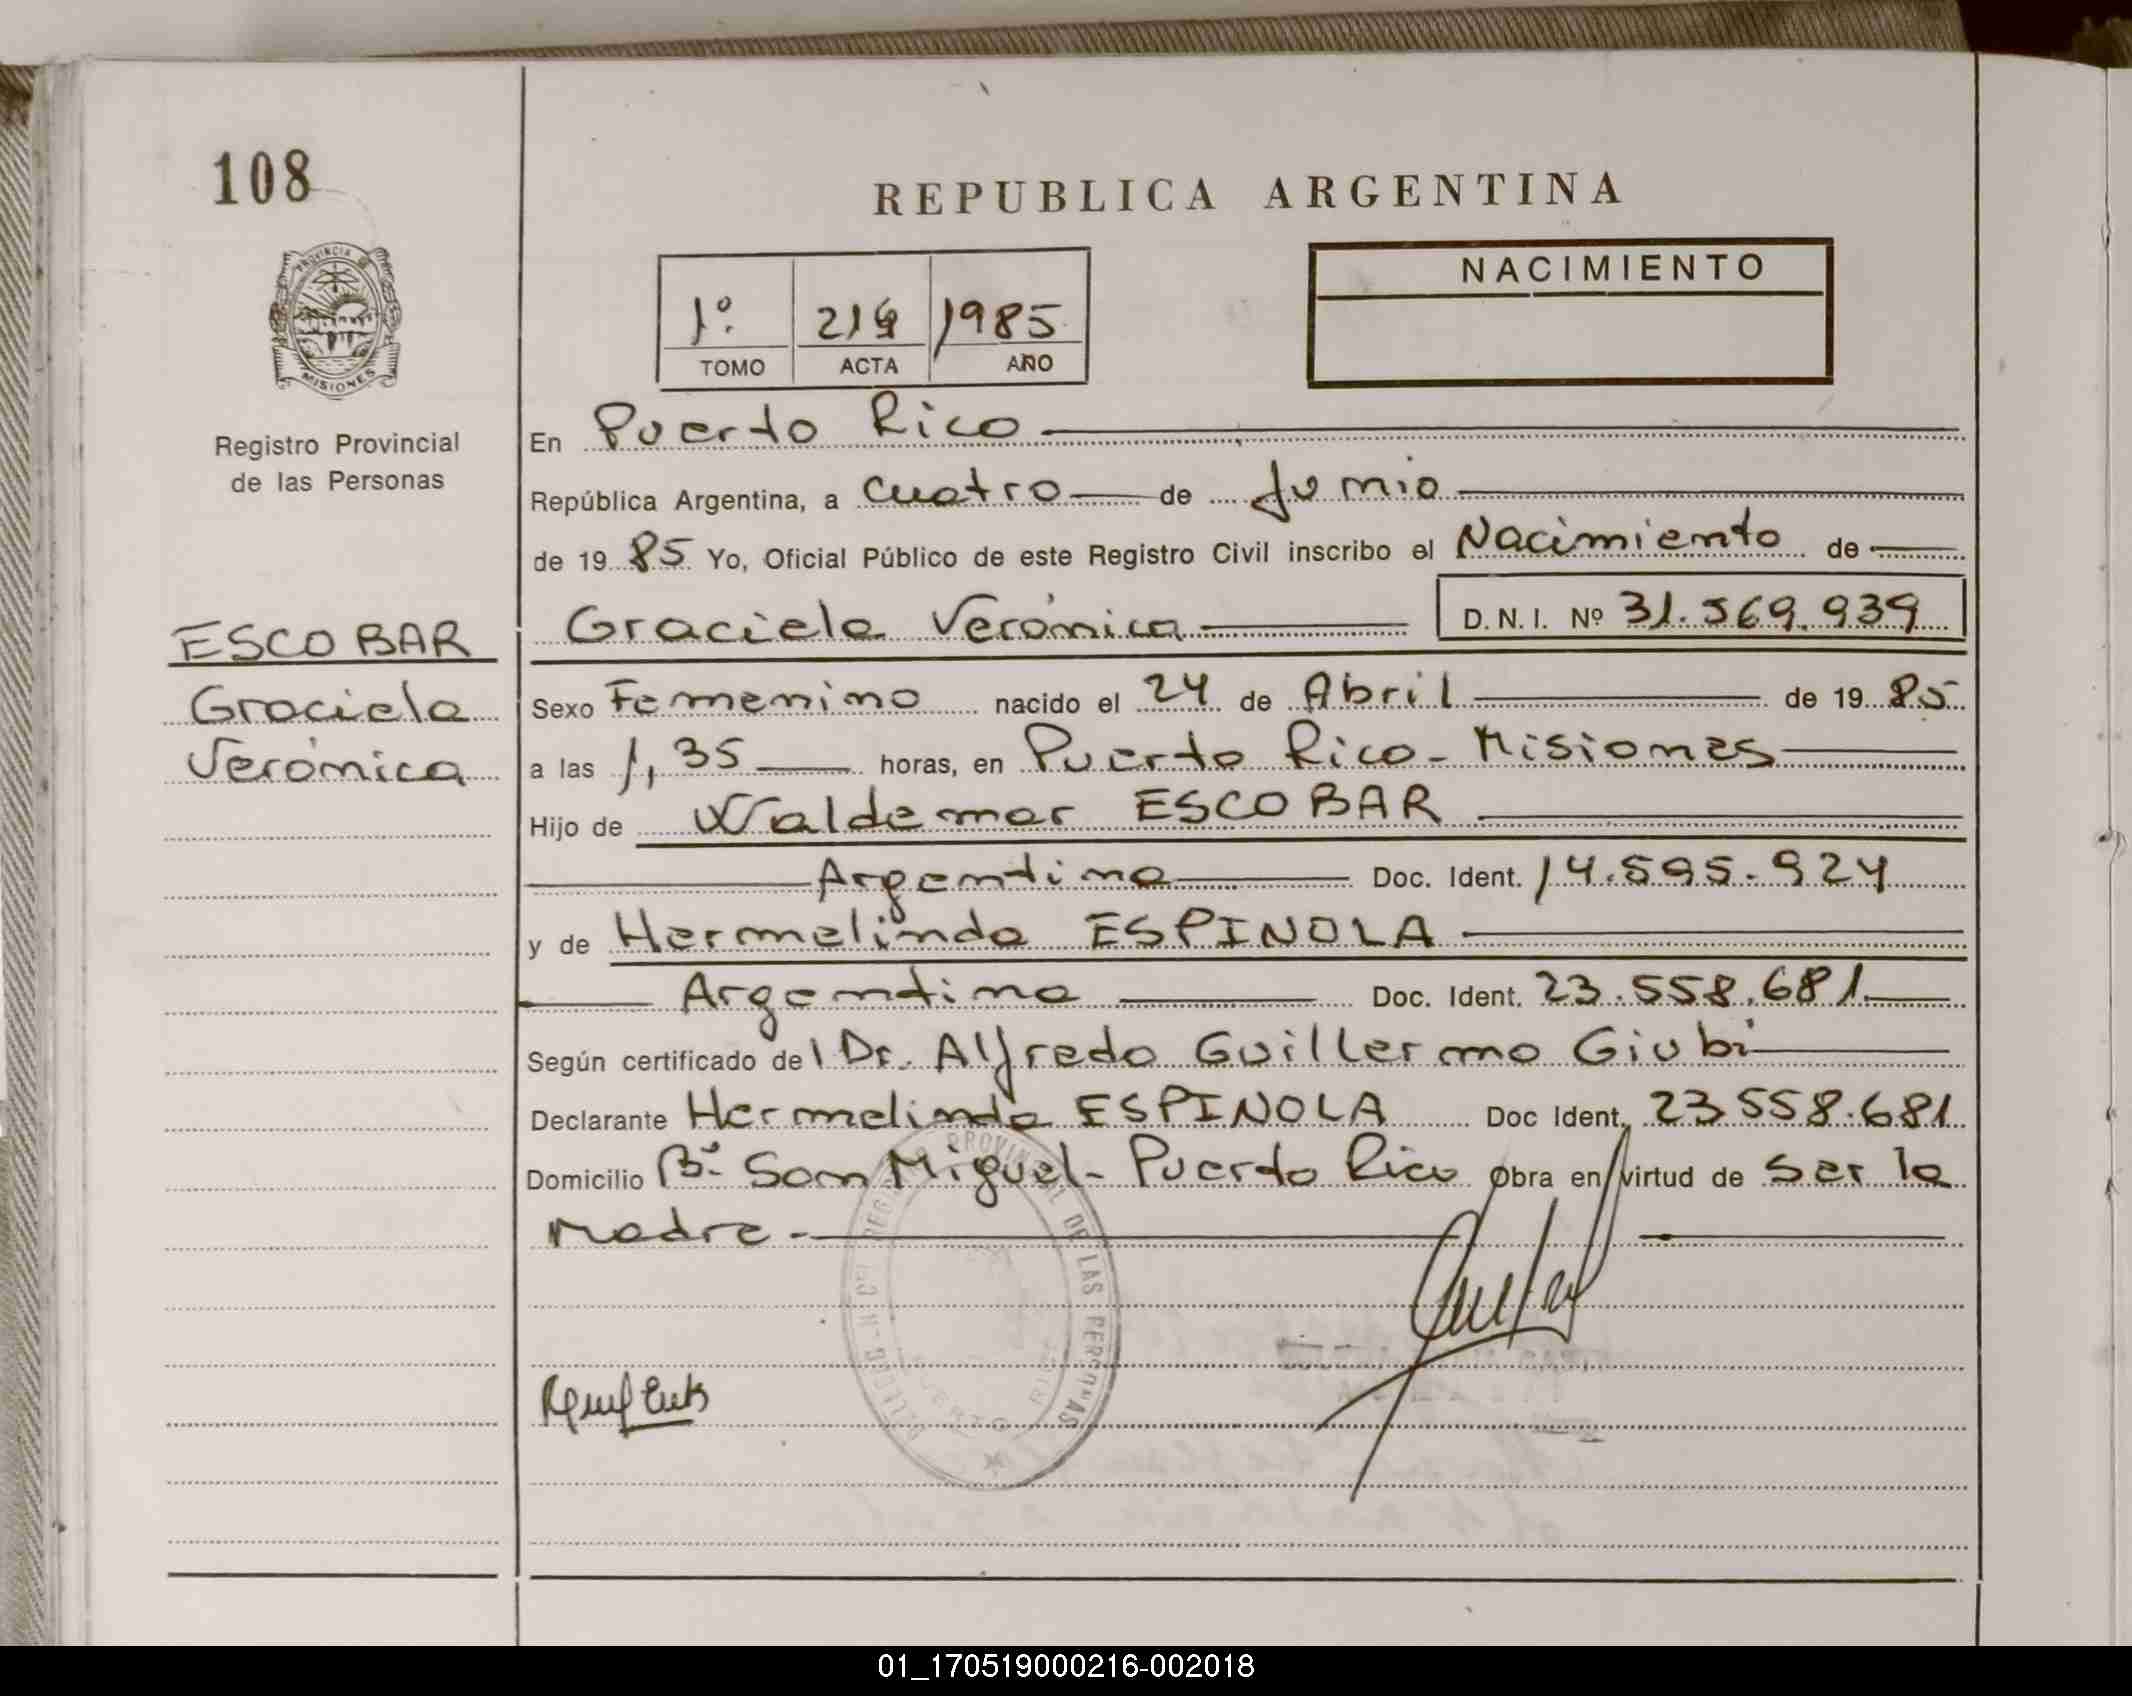 108
REPUBLICA ARGENTINA
PROVINCIA DE
MISIONES
NACIMIENTO
1º 1985
TOMO ACTA AÑO
Registro Provincial
de las Personas
En Puerto Rico
República Argentina, a cuatro de Junio
de 19 85 Yo, Oficial Público de este Registro Civil inscribo el Nacimiento de
Graciela Verónica D.N.I. Nº 31.569.939
ESCOBAR
Graciela
Verónica
Sexo Femenino nacido el 24 de Abril de 19 85
a las 1,35 horas, en Puerto Rico - Misiones
Hijo de Waldemar ESCOBAR
Argentina Doc. Ident. 14.595.924
y de Hermelinda ESPINOLA
Argentina Doc. Ident. 23.558.681
Según certificado del Dr. Alfredo Guillermo Giubi
Declarante Hermelinda ESPINOLA Doc Ident. 23.558.681
Domicilio Bº San Miguel - Puerto Rico Obra en virtud de ser la
Madre.-
REGISTRO PROVINCIAL DE LAS PERSONAS
PUERTO RICO
01_170519000216-002018